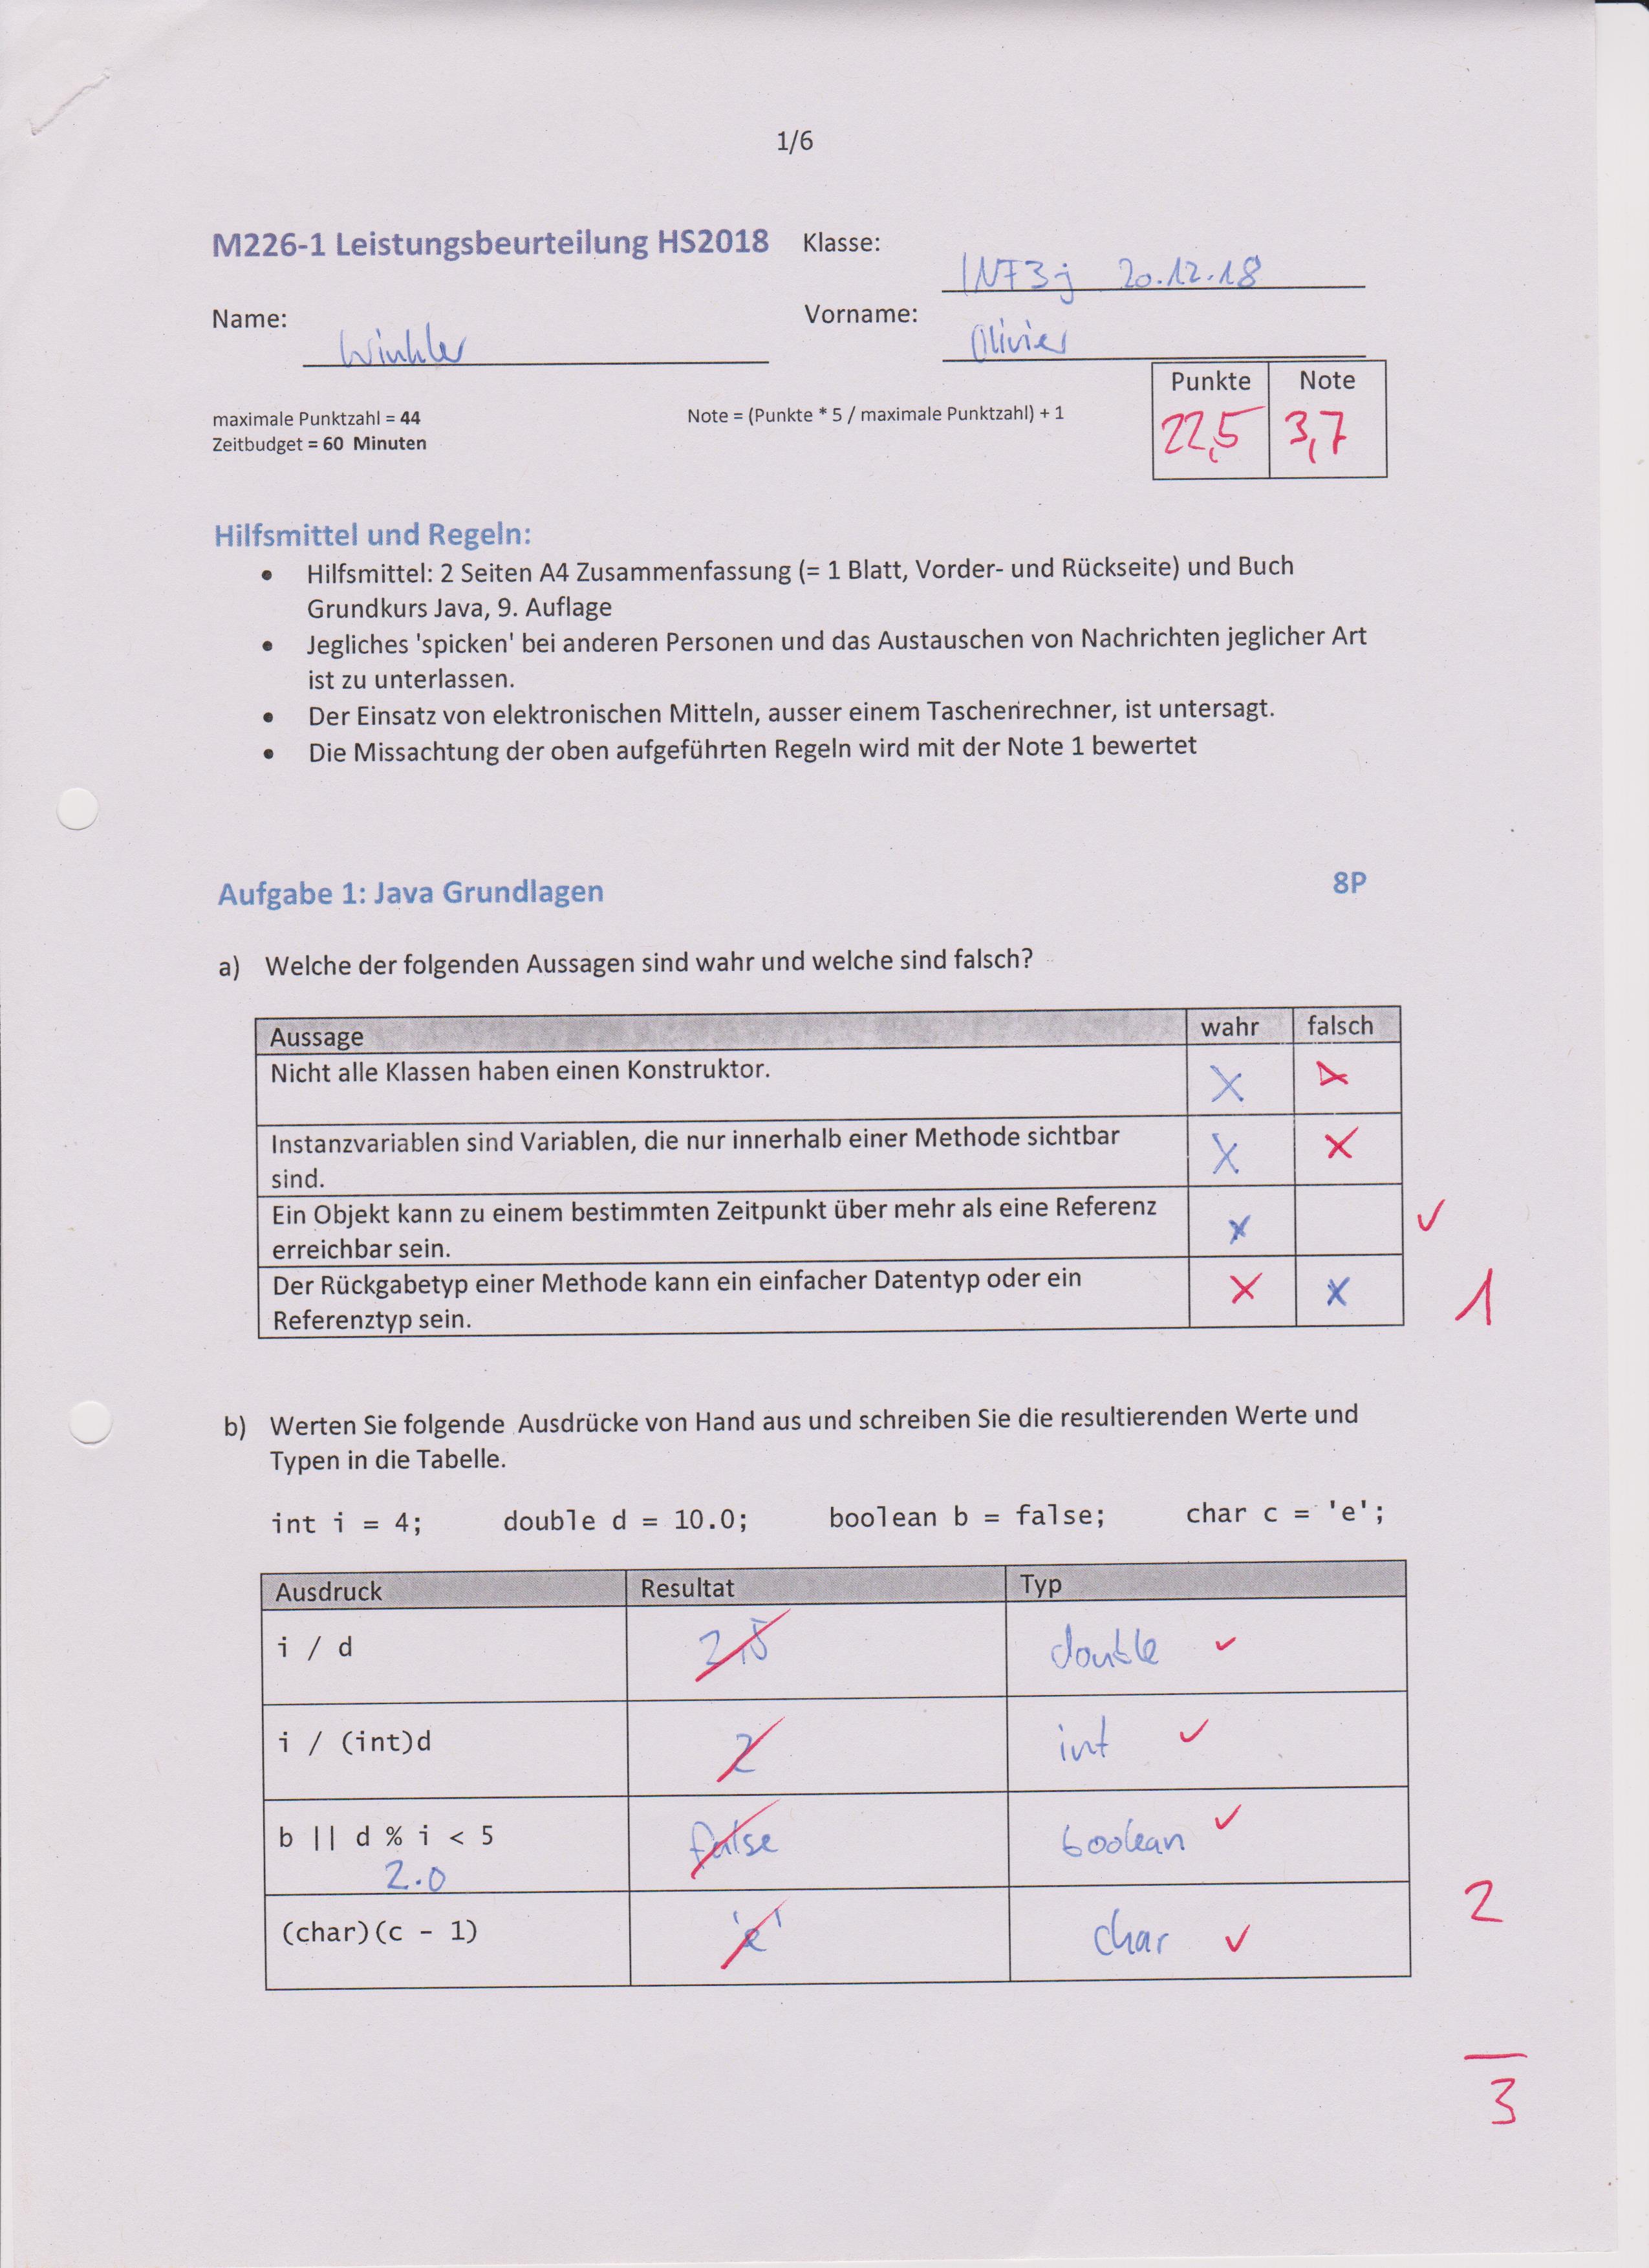 1/6
M226-1 Leistungsbeurteilung HS2018 Klasse: INF3j 20.12.18
Name: Winkler Vorname: Olivier
Punkte Note
maximale Punktzahl = 44 Note = (Punkte * 5 / maximale Punktzahl) + 1 22,5 3,7
Zeitbudget = 60 Minuten
Hilfsmittel und Regeln:
• Hilfsmittel: 2 Seiten A4 Zusammenfassung (= 1 Blatt, Vorder- und Rückseite) und Buch
Grundkurs Java, 9. Auflage
• Jegliches 'spicken' bei anderen Personen und das Austauschen von Nachrichten jeglicher Art
ist zu unterlassen.
• Der Einsatz von elektronischen Mitteln, ausser einem Taschenrechner, ist untersagt.
• Die Missachtung der oben aufgeführten Regeln wird mit der Note 1 bewertet
Aufgabe 1: Java Grundlagen 8P
a) Welche der folgenden Aussagen sind wahr und welche sind falsch?
Aussage wahr falsch
Nicht alle Klassen haben einen Konstruktor. X X
Instanzvariablen sind Variablen, die nur innerhalb einer Methode sichtbar X X
sind.
Ein Objekt kann zu einem bestimmten Zeitpunkt über mehr als eine Referenz X ✓
erreichbar sein.
Der Rückgabetyp einer Methode kann ein einfacher Datentyp oder ein X X 1
Referenztyp sein.
b) Werten Sie folgende Ausdrücke von Hand aus und schreiben Sie die resultierenden Werte und
Typen in die Tabelle.
int i = 4; double d = 10.0; boolean b = false; char c = 'e';
Ausdruck Resultat Typ
i / d 2,5 double ✓
i / (int)d 2 int ✓
b || d % i < 5 false boolean ✓
2.0
(char)(c - 1) 'e' char ✓ 2
3